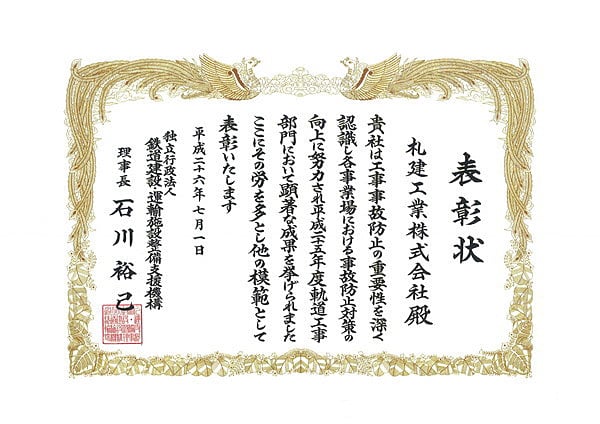 表彰状
札建工業株式会社殿
貴社は工事事故防止の重要性を深く
認識し各事業場における事故防止対策の
向上に努力され平成二十五年度軌道工事
部門において顕著な成果を挙げられました
ここにその労を多とし他の模範として
表彰いたします
平成二十六年七月一日
独立行政法人
鉄道建設・運輸施設整備支援機構
理事長 石川裕己